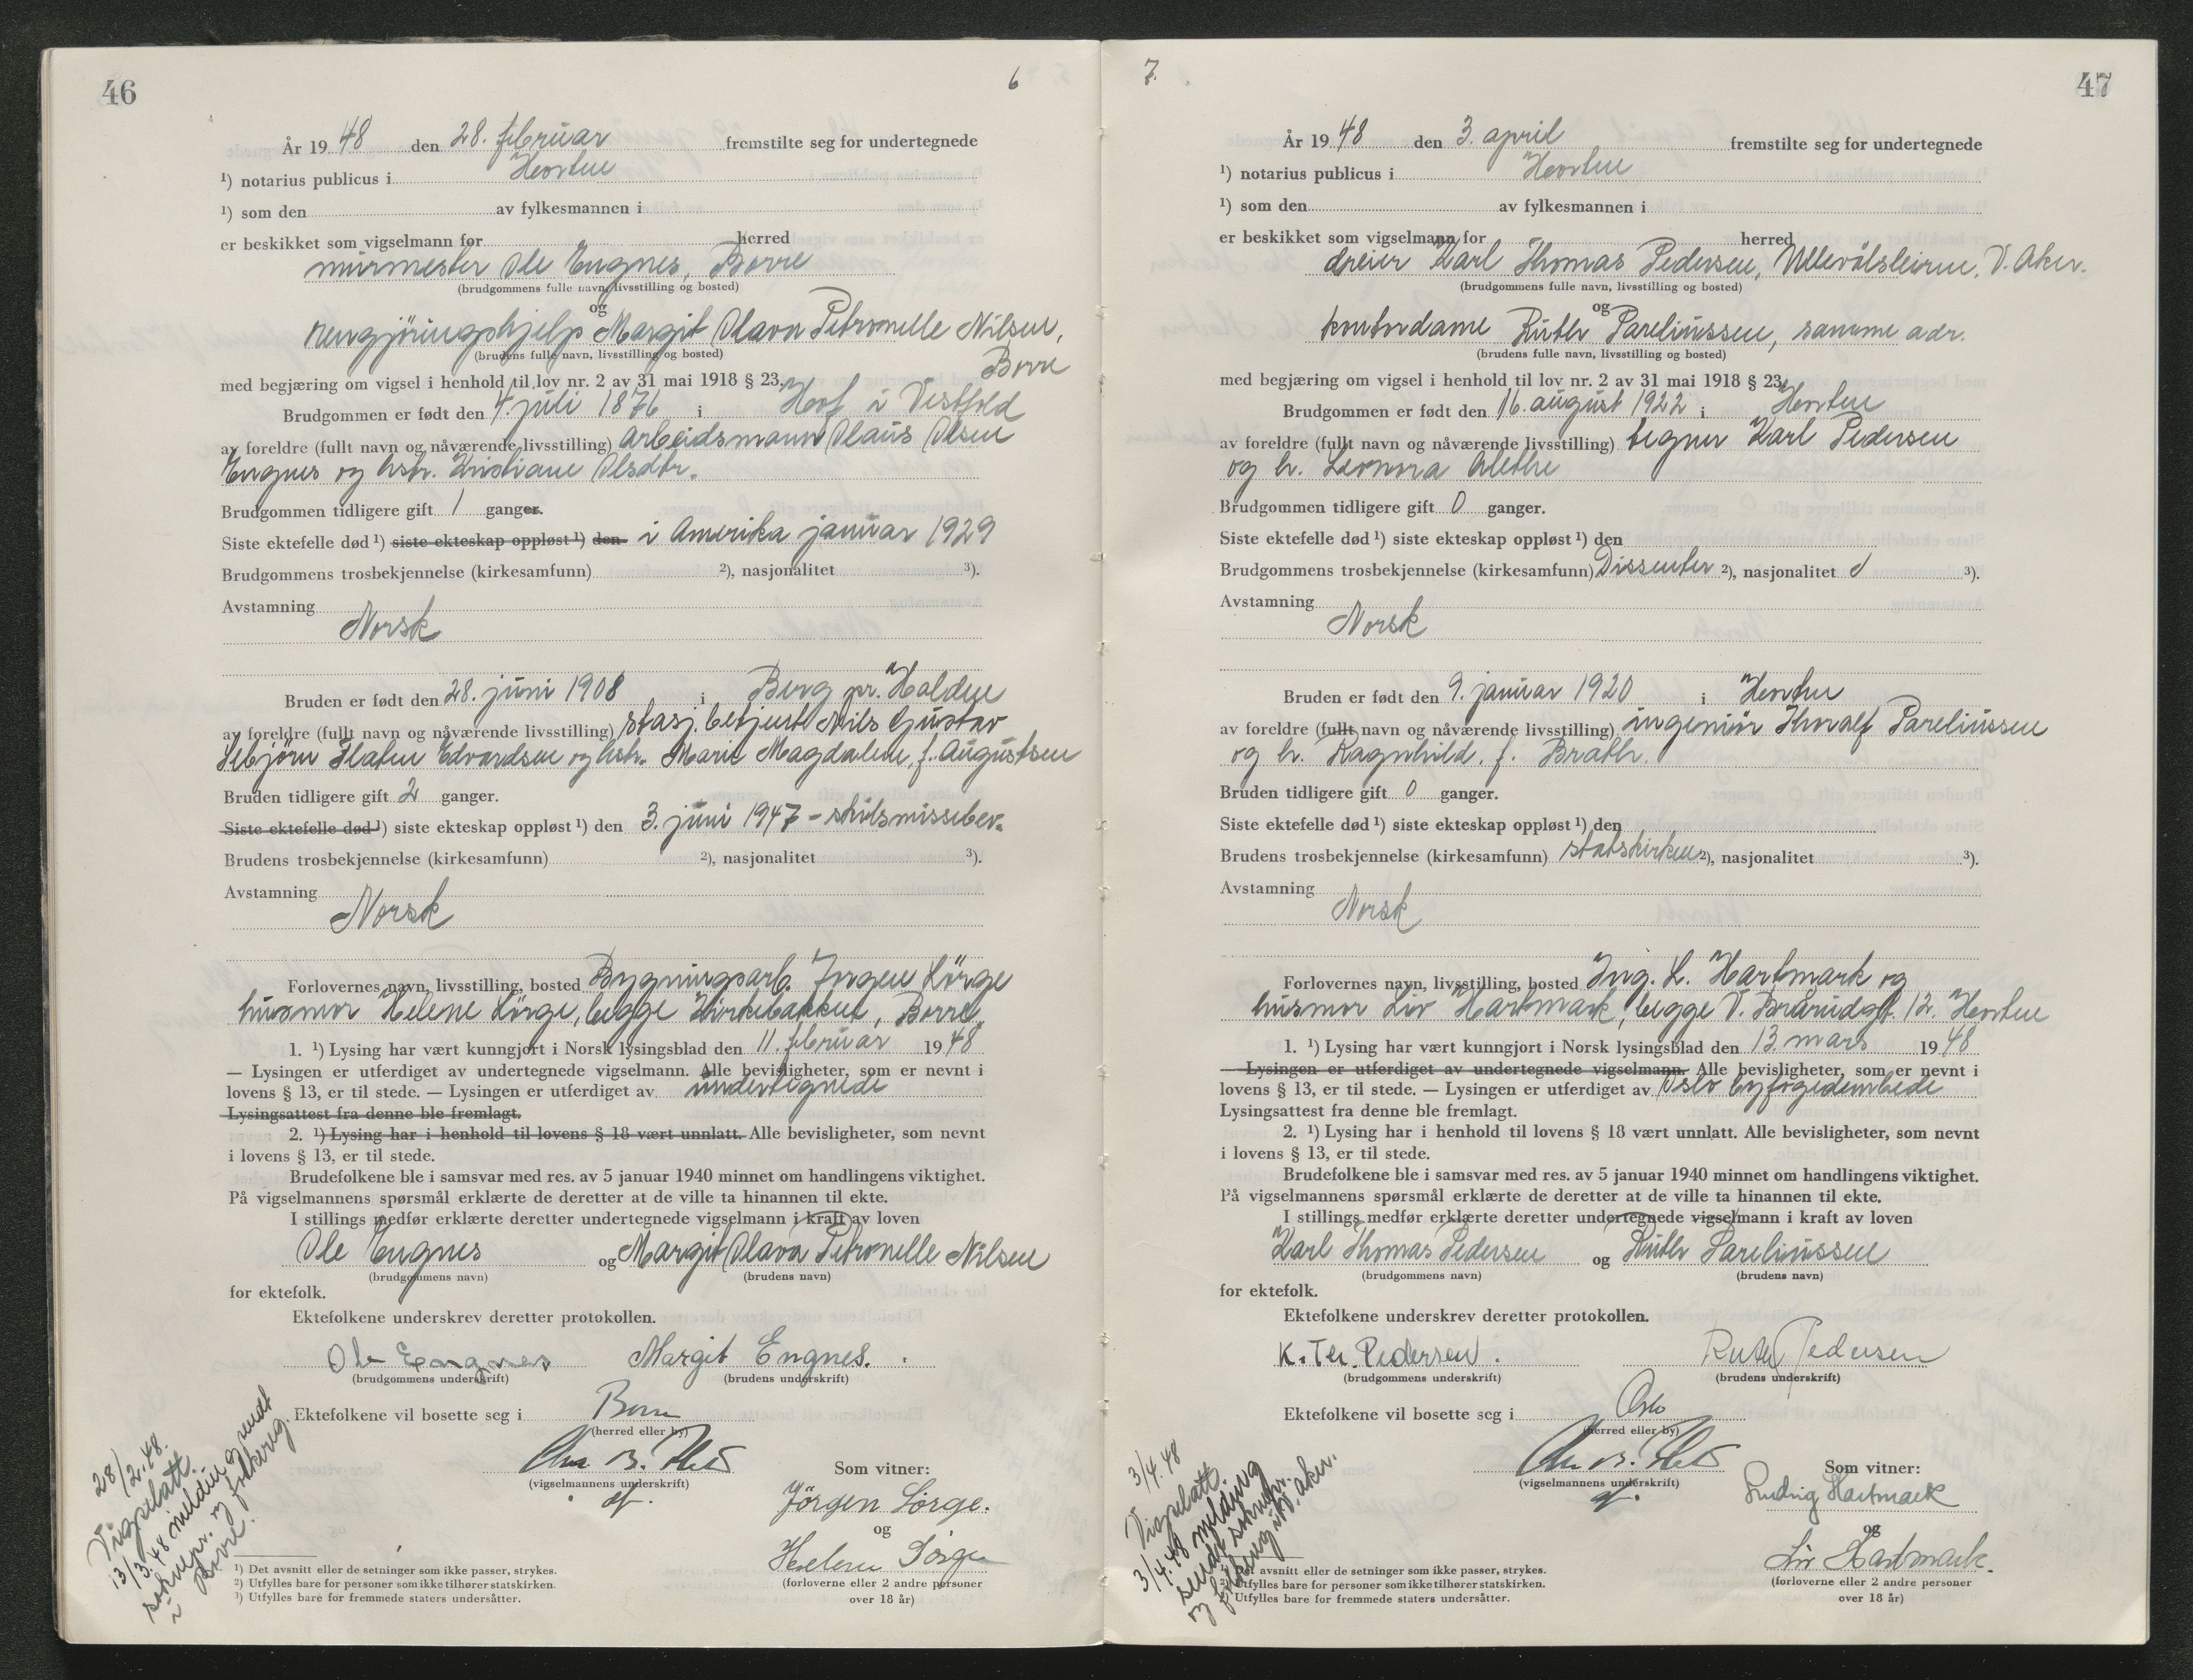 46
6
År 1948 den 28. februar fremstilte seg for undertegnede
¹) notarius publicus i Horten
¹) som den av fylkesmannen i
er beskikket som vigselmann for herred
murmester Ole Engnes, Borre
(brudgommens fulle navn, livsstilling og bosted)
og
rengjøringshjelp Margit Olava Petronelle Nilsen,
(brudens fulle navn, livsstilling og bosted)
Borre
med begjæring om vigsel i henhold til lov nr. 2 av 31 mai 1918 § 23.
Brudgommen er født den 4. juli 1876 i Hof i Vestfold
av foreldre (fullt navn og nåværende livsstilling) arbeidsmann Olaus Olsen
Engnes og hstr. Kristiane Olsdtr.
Brudgommen tidligere gift 1 ganger.
Siste ektefelle død ¹) siste ekteskap oppløst ¹) den i Amerika januar 1929
Brudgommens trosbekjennelse (kirkesamfunn) ²), nasjonalitet ³).
Avstamning
Norsk
Bruden er født den 28. juni 1908 i Berg pr. Halden
av foreldre (fullt navn og nåværende livsstilling) stasj.betjent Nils Gustav
Flaten Edvardsen og hstr. Marie Magdalene, f. Augustsen
Bruden tidligere gift 2 ganger.
Siste ektefelle død ¹) siste ekteskap oppløst ¹) den 3. juni 1947 - skilsmissebev.
Brudens trosbekjennelse (kirkesamfunn) ²), nasjonalitet ³).
Avstamning
Norsk
Forlovernes navn, livsstilling, bosted Bygningsarb. Jørgen Sørge
husmor Helene Sørge, begge Kirkebakken, Borre.
1. ¹) Lysing har vært kunngjort i Norsk lysingsblad den 11. februar 1948
— Lysingen er utferdiget av undertegnede vigselmann. Alle bevisligheter, som er nevnt i
lovens § 13, er til stede. — Lysingen er utferdiget av undertegnede
Lysingsattest fra denne ble fremlagt.
2. ¹) Lysing har i henhold til lovens § 18 vært unnlatt. Alle bevisligheter, som nevnt
i lovens § 13, er til stede.
Brudefolkene ble i samsvar med res. av 5 januar 1940 minnet om handlingens viktighet.
På vigselmannens spørsmål erklærte de deretter at de ville ta hinannen til ekte.
I stillings medfør erklærte deretter undertegnede vigselmann i kraft av loven
Ole Engnes og Margit Olava Petronelle Nilsen
(brudgommens navn) (brudens navn)
for ektefolk.
Ektefolkene underskrev deretter protokollen.
Ole Engnes Margit Engnes.
(brudgommens underskrift) (brudens underskrift)
Ektefolkene vil bosette seg i Borre
(herred eller by)
(vigselmannens underskrift)
Som vitner:
Jörgen Sørge.
og
Helene Sørge
(forloverne eller 2 andre personer
over 18 år)
28/2.48.
Vigselatt.
13/3.48 melding sendt
soknepr. og folkereg.
i Borre.
¹) Det avsnitt eller de setninger som ikke passer, strykes.
²) Utfylles bare for personer som ikke tilhører statskirken.
³) Utfylles bare for fremmede staters undersåtter.
7.
47
År 1948 den 3. april fremstilte seg for undertegnede
¹) notarius publicus i Horten
¹) som den av fylkesmannen i
er beskikket som vigselmann for herred
dreier Karl Thomas Pedersen, Ullevålsleiren, V. Aker.
(brudgommens fulle navn, livsstilling og bosted)
og
kontordame Ruth Pareliussen, samme adr.
(brudens fulle navn, livsstilling og bosted)
med begjæring om vigsel i henhold til lov nr. 2 av 31 mai 1918 § 23.
Brudgommen er født den 16. august 1922 i Horten
av foreldre (fullt navn og nåværende livsstilling) tegner Karl Pedersen
og h. Leonora Alethe
Brudgommen tidligere gift 0 ganger.
Siste ektefelle død ¹) siste ekteskap oppløst ¹) den
Brudgommens trosbekjennelse (kirkesamfunn) Dissenter ²), nasjonalitet ³).
Avstamning
Norsk
Bruden er født den 9. januar 1920 i Horten
av foreldre (fullt navn og nåværende livsstilling) ingeniör Thoralf Pareliussen
og h. Ragnhild, f. Brath.
Bruden tidligere gift 0 ganger.
Siste ektefelle død ¹) siste ekteskap oppløst ¹) den
Brudens trosbekjennelse (kirkesamfunn) statskirken ²), nasjonalitet ³).
Avstamning
Norsk
Forlovernes navn, livsstilling, bosted Ing. L. Hartmark og
husmor Liv Hartmark, begge V. Brårudgt. 12. Horten
1. ¹) Lysing har vært kunngjort i Norsk lysingsblad den 13. mars 1948
— Lysingen er utferdiget av undertegnede vigselmann. Alle bevisligheter, som er nevnt i
lovens § 13, er til stede. — Lysingen er utferdiget av Oslo byfogedembede
Lysingsattest fra denne ble fremlagt.
2. ¹) Lysing har i henhold til lovens § 18 vært unnlatt. Alle bevisligheter, som nevnt
i lovens § 13, er til stede.
Brudefolkene ble i samsvar med res. av 5 januar 1940 minnet om handlingens viktighet.
På vigselmannens spørsmål erklærte de deretter at de ville ta hinannen til ekte.
I stillings medfør erklærte deretter undertegnede vigselmann i kraft av loven
Karl Thomas Pedersen og Ruth Pareliussen
(brudgommens navn) (brudens navn)
for ektefolk.
Ektefolkene underskrev deretter protokollen.
K. Th. Pedersen. Ruth Pedersen
(brudgommens underskrift) (brudens underskrift)
Ektefolkene vil bosette seg i Oslo
(herred eller by)
(vigselmannens underskrift)
Som vitner:
Ludvig Hartmark
og
Liv Hartmark.
(forloverne eller 2 andre personer
over 18 år)
3/4.48
Vigselatt.
3/4.48 melding
sendt soknepr.
og folkereg. i V. Aker.
¹) Det avsnitt eller de setninger som ikke passer, strykes.
²) Utfylles bare for personer som ikke tilhører statskirken.
³) Utfylles bare for fremmede staters undersåtter.